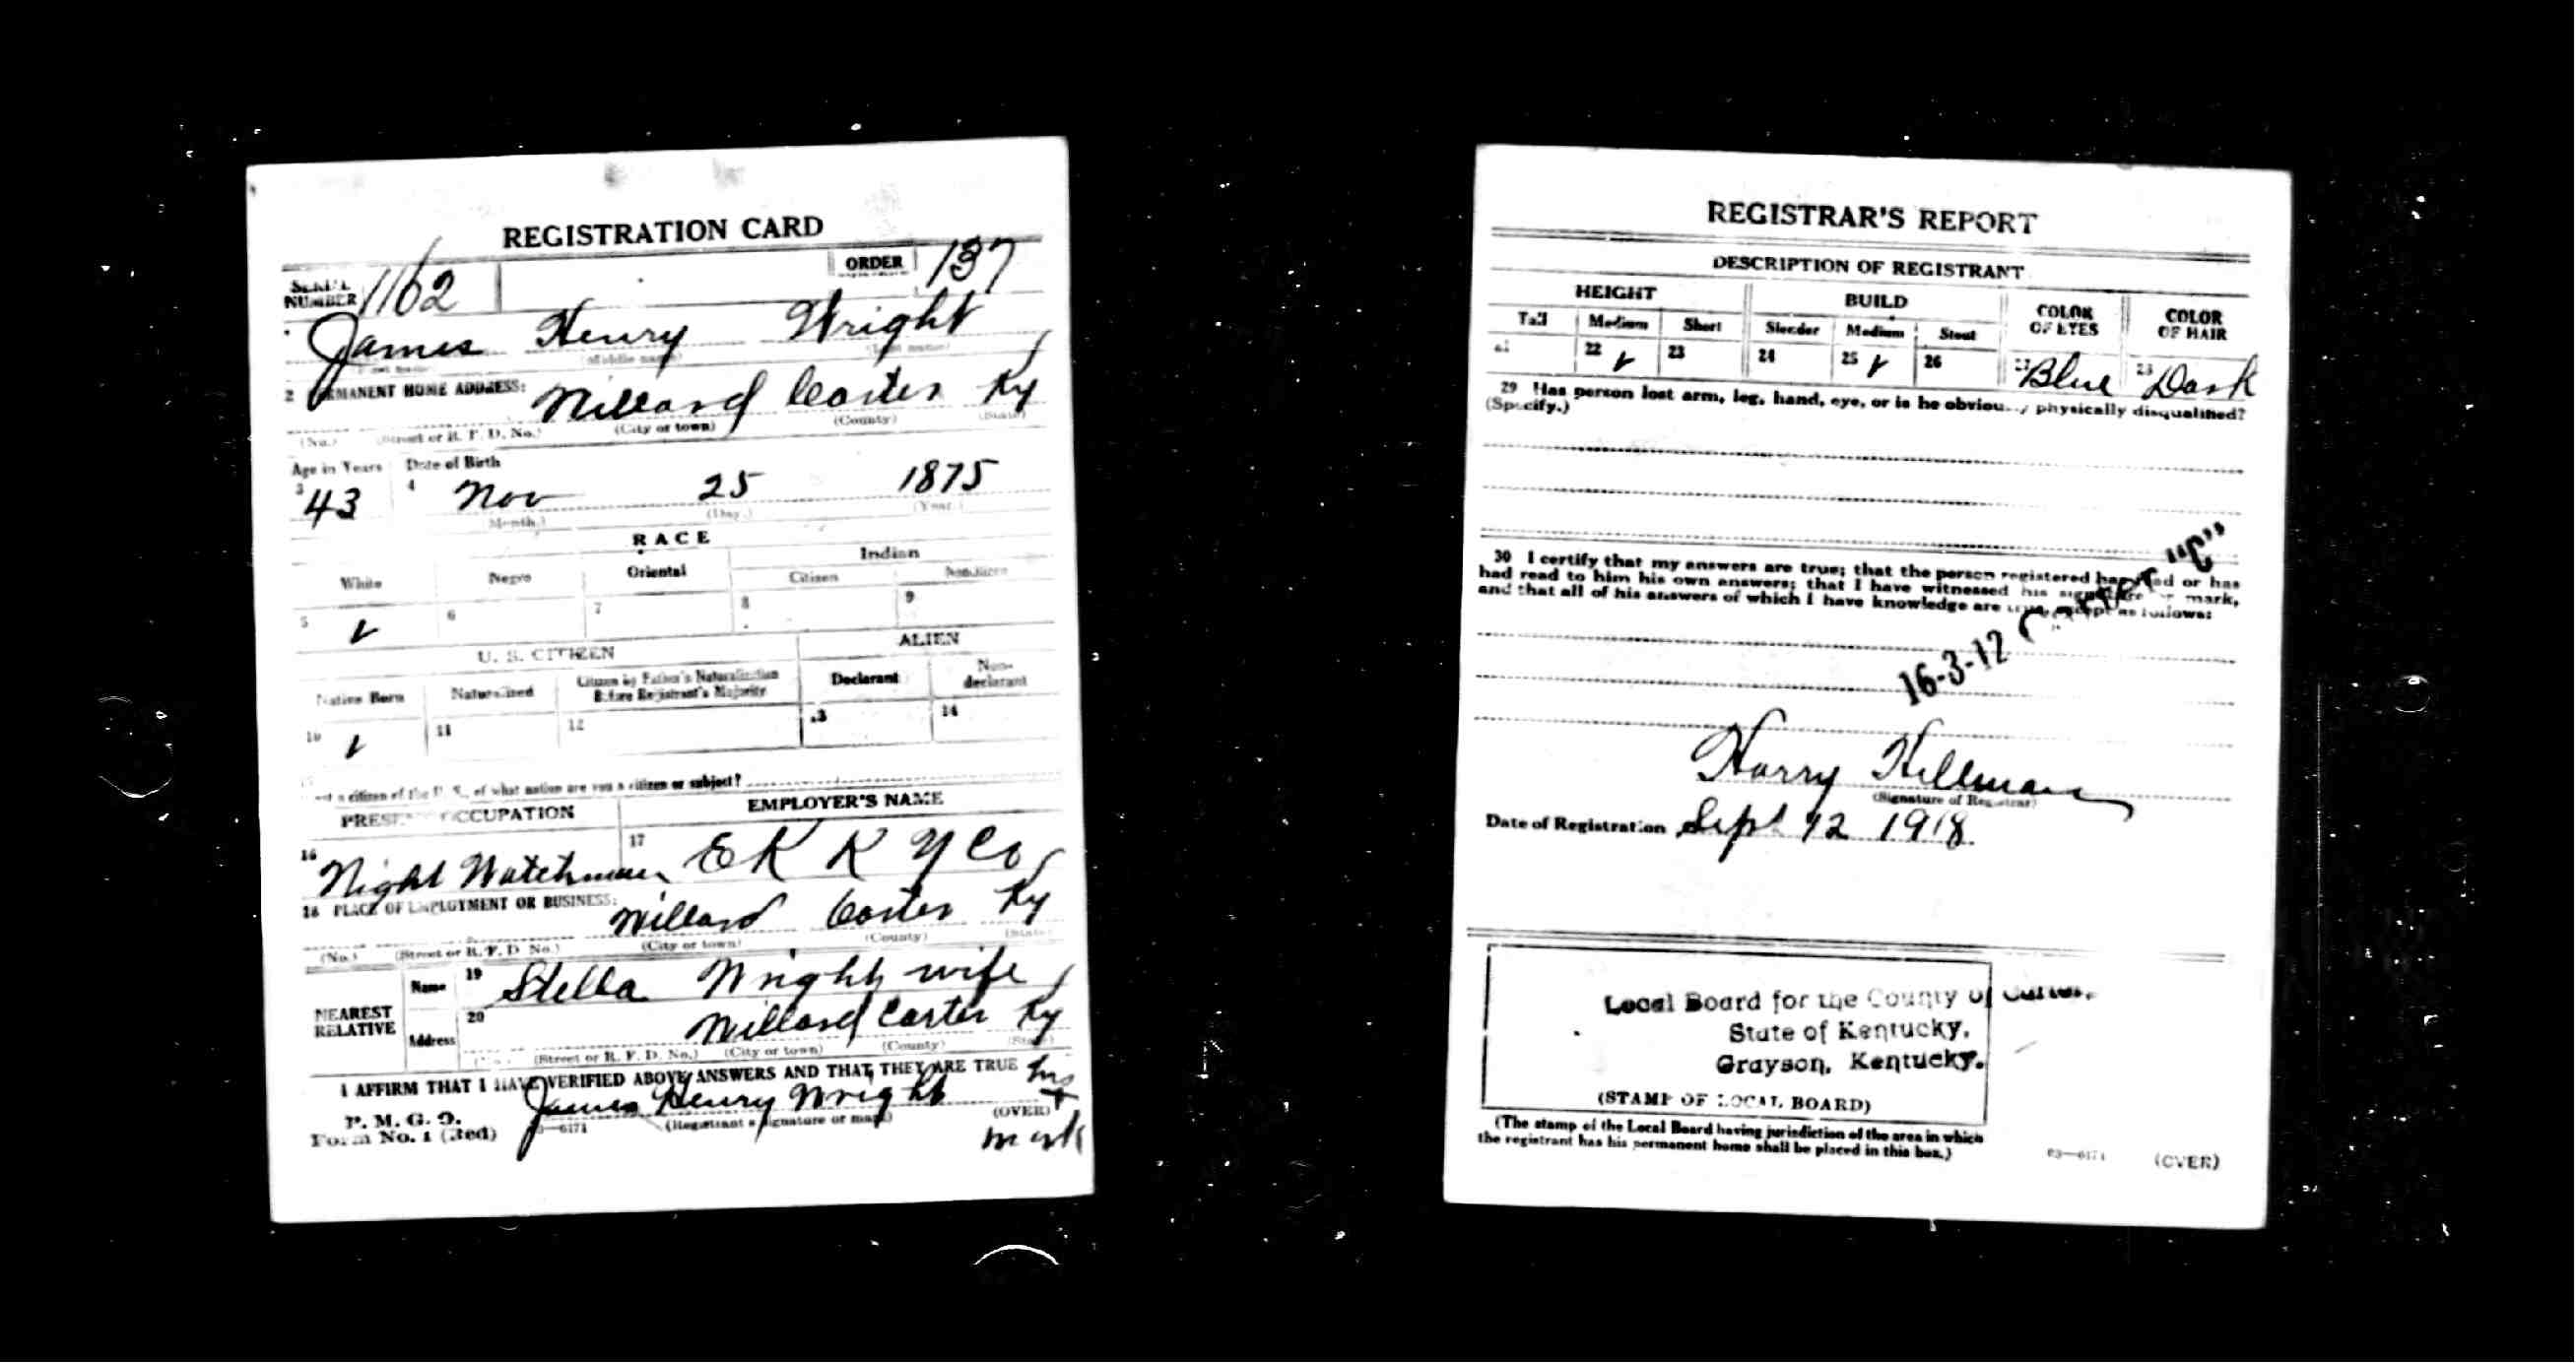 REGISTRATION CARD
SERIAL NUMBER 1162 ORDER 137
James Henry Wright
(Middle name) (Last name)
2 PERMANENT HOME ADDRESS: Willard Carter Ky
(No.) (Street or R. F. D. No.) (City or town) (County) (State)
Age in Years Date of Birth
3 43 4 Nov 25 1875
(Month.) (Day.) (Year.)
RACE
White Negro Oriental Indian
Citizen Noncitizen
5 ✓ 6 7 8 9
U. S. CITIZEN ALIEN
Native Born Naturalized Citizen by Father's Naturalization Before Registrant's Majority Declarant Non-declarant
10 ✓ 11 12 13 14
not a citizen of the U. S., of what nation are you a citizen or subject?
PRESENT OCCUPATION EMPLOYER'S NAME
16 Night Watchman 17 E K R Y Co
18 PLACE OF EMPLOYMENT OR BUSINESS: Willard Carter Ky
(No.) (Street or R. F. D. No.) (City or town) (County) (State)
NEAREST RELATIVE
Name 19 Stella Wright wife
Address 20 Willard Carter Ky
(Street or R. F. D. No.) (City or town) (County) (State)
I AFFIRM THAT I HAVE VERIFIED ABOVE ANSWERS AND THAT THEY ARE TRUE his
P. M. G. O. James Henry Wright x
Form No. 1 (Red) 6171 (Registrant's signature or mark) (OVER) mark
REGISTRAR'S REPORT
DESCRIPTION OF REGISTRANT
HEIGHT BUILD COLOR OF EYES COLOR OF HAIR
Tall Medium Short Slender Medium Stout
21 22 ✓ 23 24 25 ✓ 26 27 Blue 28 Dark
29 Has person lost arm, leg, hand, eye, or is he obviously physically disqualified?
(Specify.)
30 I certify that my answers are true; that the person registered has read or has
had read to him his own answers; that I have witnessed his signature or mark,
and that all of his answers of which I have knowledge are true, except as follows:
16-3-12 Carter "C"
Harry Hillman
(Signature of Registrar)
Date of Registration Sept 12 1918
Local Board for the County of Carter,
State of Kentucky.
Grayson, Kentucky.
(STAMP OF LOCAL BOARD)
(The stamp of the Local Board having jurisdiction of the area in which
the registrant has his permanent home shall be placed in this box.)
03—6171 (OVER)